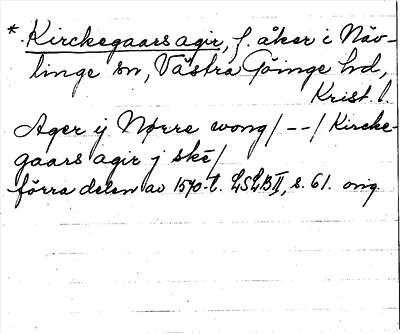 * Kirckegaars agir, f. åker i Näv-
linge sn, Västra Göinge hd,
Krist. l.
Ager ij Nørre wong/ -- / Kircke-
gaars agir j skē/
förra delen av 1570-t. LSLB II, s. 61. orig